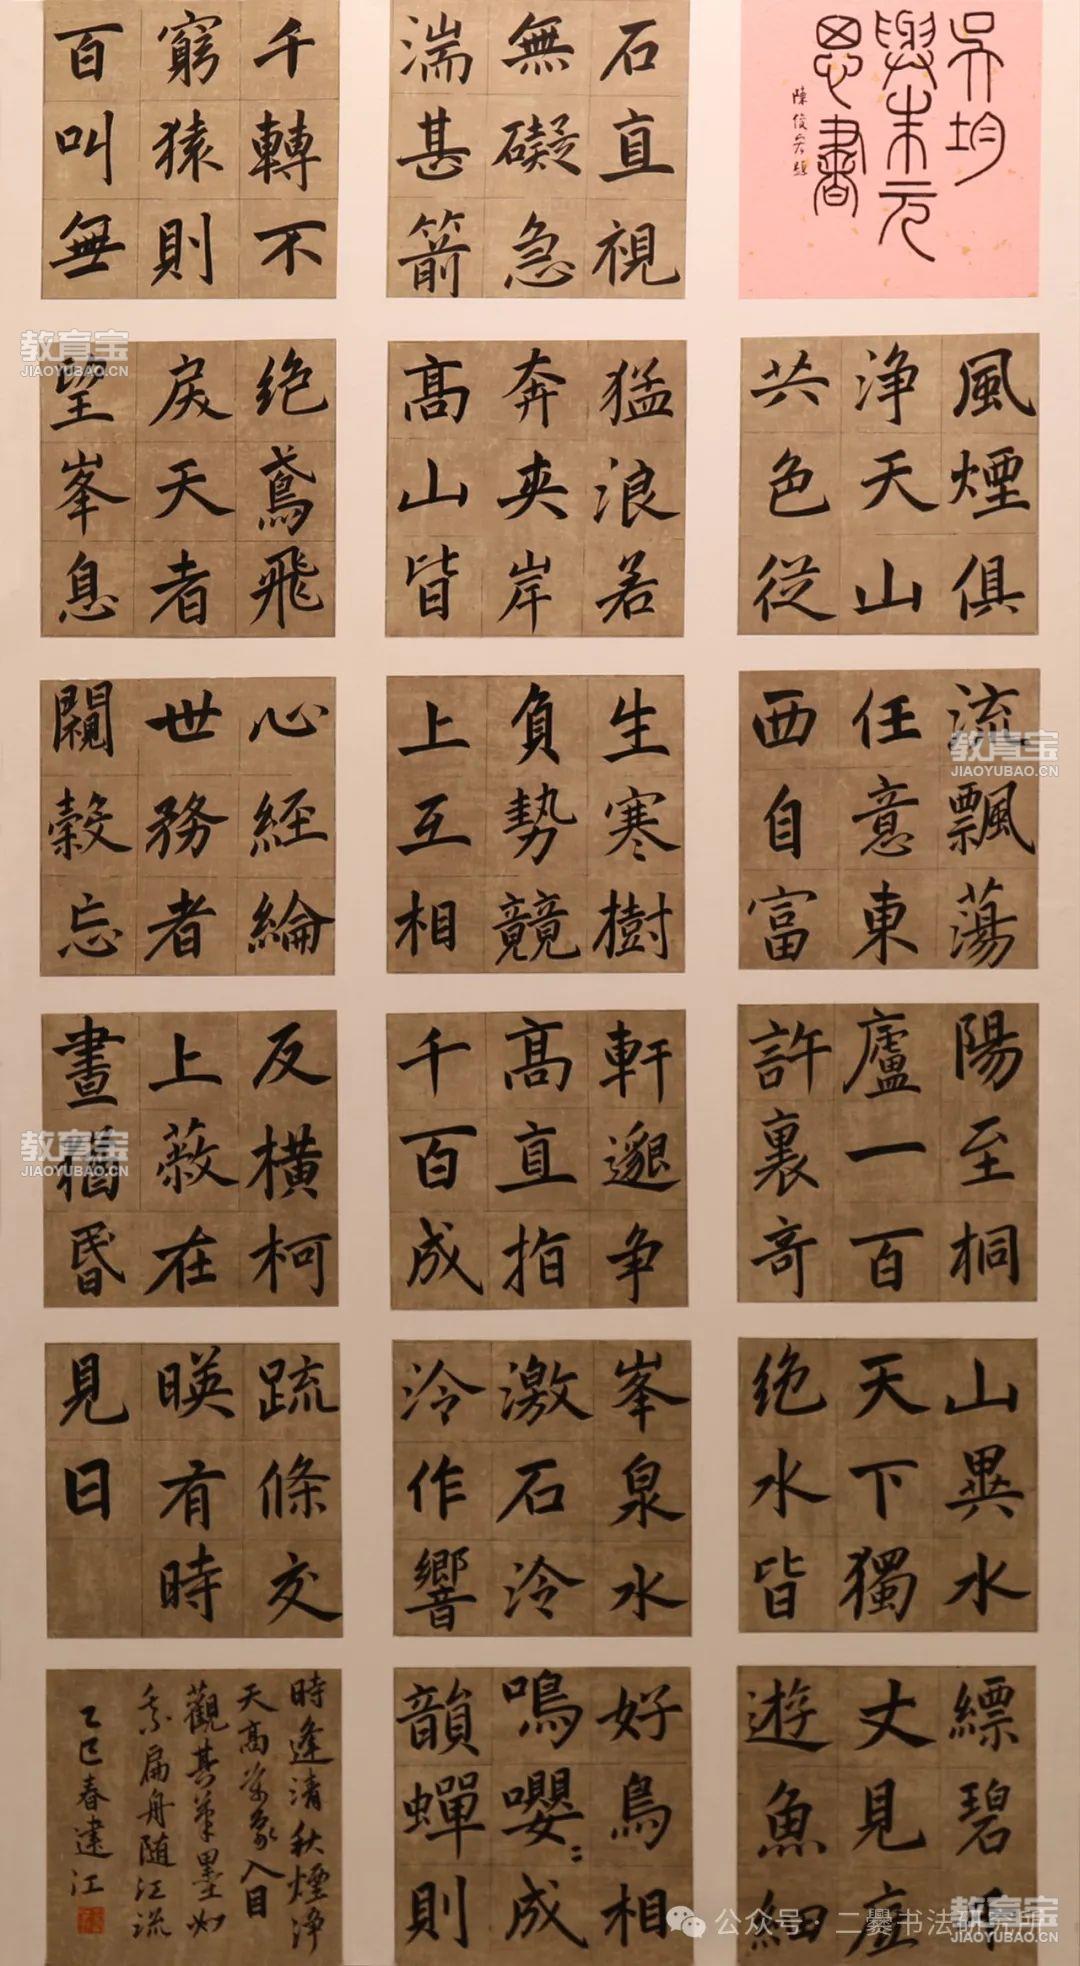 吳均
與朱元
思書
陳俊題
風煙俱
浄天山
共色從
流飄蕩
任意東
西自富
陽至桐
廬一百
許裏奇
山異水
天下獨
绝水皆
縹碧千
丈見底
遊魚細
石直視
無礙急
湍甚箭
猛浪若
奔夾岸
髙山皆
生寒樹
負勢競
上互相
軒邈争
髙直指
千百成
峯泉水
激石泠
泠作響
好鳥相
鳴嚶〻成
韻蟬則
千轉不
窮猿則
百叫無
绝鳶飛
戾天者
望峯息
心經綸
世務者
闚榖忘
反橫柯
上蔽在
晝猶昏
疏條交
暎有時
見日
時逢清秋煙浄
天髙萬象入目
觀其筆墨如
乘扁舟隨江流
乙巳春建江
教育宝
JIAOYUBAO.CN
教育宝
JIAOYUBAO.CN
教育宝
JIAOYUBAO.CN
教育宝
JIAOYUBAO.CN
公众号·二爨书法研究所